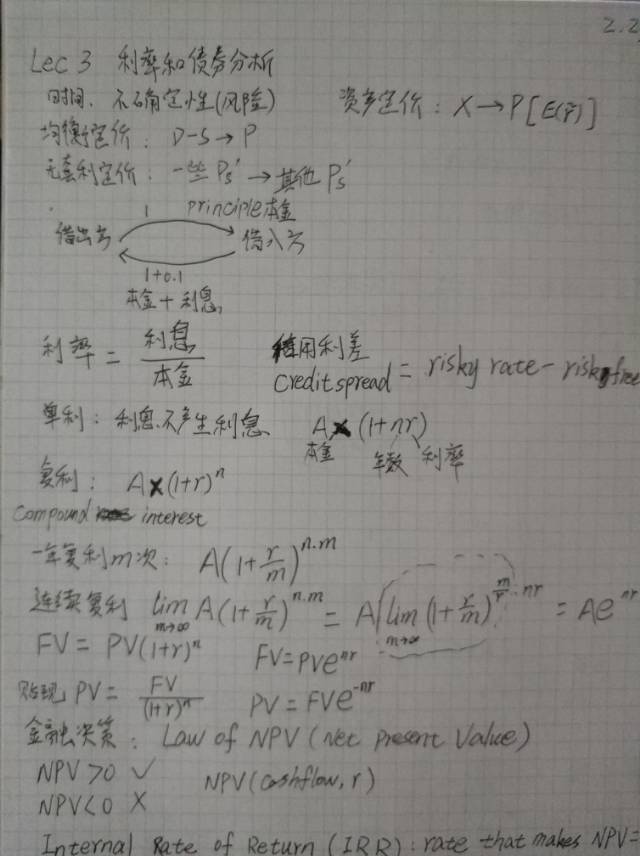 2.2
Lec 3 利率和债券分析
时间、不确定性(风险) 资产定价: X → P [E(r̃)]
均衡定价: D-S → P
无套利定价: 一些 Ps' → 其他 Ps'
1 principle本金
借出方 借入方
1+0.1
本金+利息
利率 = 利息/本金 信用利差
credit spread = risky rate - risk free
单利: 利息不产生利息 A×(1+nr)
本金 年数 利率
复利: A×(1+r)^n
compound interest
一年复利m次: A(1+r/m)^{n·m}
连续复利 lim_{m→∞} A(1+r/m)^{n·m} = A[lim_{m→∞}(1+r/m)^{m/r·nr}] = Ae^{nr}
FV = PV(1+r)^n FV=PVe^{nr}
贴现 PV = FV/(1+r)^n PV = FVe^{-nr}
金融决策: Law of NPV (Net Present Value)
NPV>0 ✓ NPV(cashflow, r)
NPV<0 ×
Internal Rate of Return (IRR): rate that makes NPV=